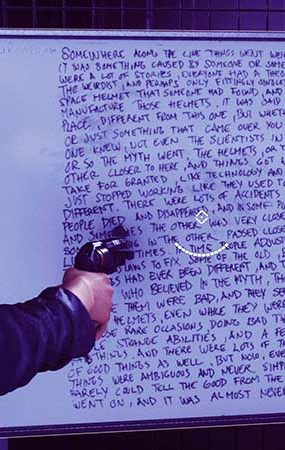 SOMEWHERE ALONG THE LINE THINGS WENT
IT WAS SOMETHING CAUSED BY SOMEONE OR
WERE A LOT OF STORIES. EVERYONE HAD A
THE WEIRDIST, AND PERHAPS ONLY FITTINGLY
SPACE HELMET THAT SOMEONE HAD FOUND, AND
MANUFACTURE THOSE HELMETS. IT WAS SAID
PLACE, DIFFERENT FROM THIS ONE, BUT
OR JUST SOMETHING THAT CAME OVER YOU
ONE KNEW, NOT EVEN THE SCIENTISTS IN
OR SO THE MYTH WENT. THE HELMETS, OR
OTHER CLOSER TO HERE, AND THINGS GOT
TAKE FOR GRANTED LIKE TECHNOLOGY AND
JUST STOPPED WORKING LIKE THEY USED TO
DIFFERENT. THERE WERE LOTS OF ACCIDENTS
PEOPLE DIED AND AND IN SOME
AND THE OTHER WAS VERY CLOSE
IN THE OTHER PASSED CLOSE
TIMES PEOPLE
FIX SOME OF THE OLD
HAD EVER BEEN DIFFERENT, AND
WHO BELIEVED IN THE MYTH, TH
THEM WERE BAD, AND THEY
HELMETS, EVEN WHILE THEY WERE
RARE OCCASIONS, DOING BAD
STRANGE ABILITIES, AND A FE
THINGS, AND THERE WERE LOTS
OF GOOD THINGS AS WELL. BUT NOW,
THINGS WERE AMBIGUOUS AND NEVER
RARELY COULD TELL THE GOOD FROM THE
WENT ON, AND IT WAS ALMOST NEVER